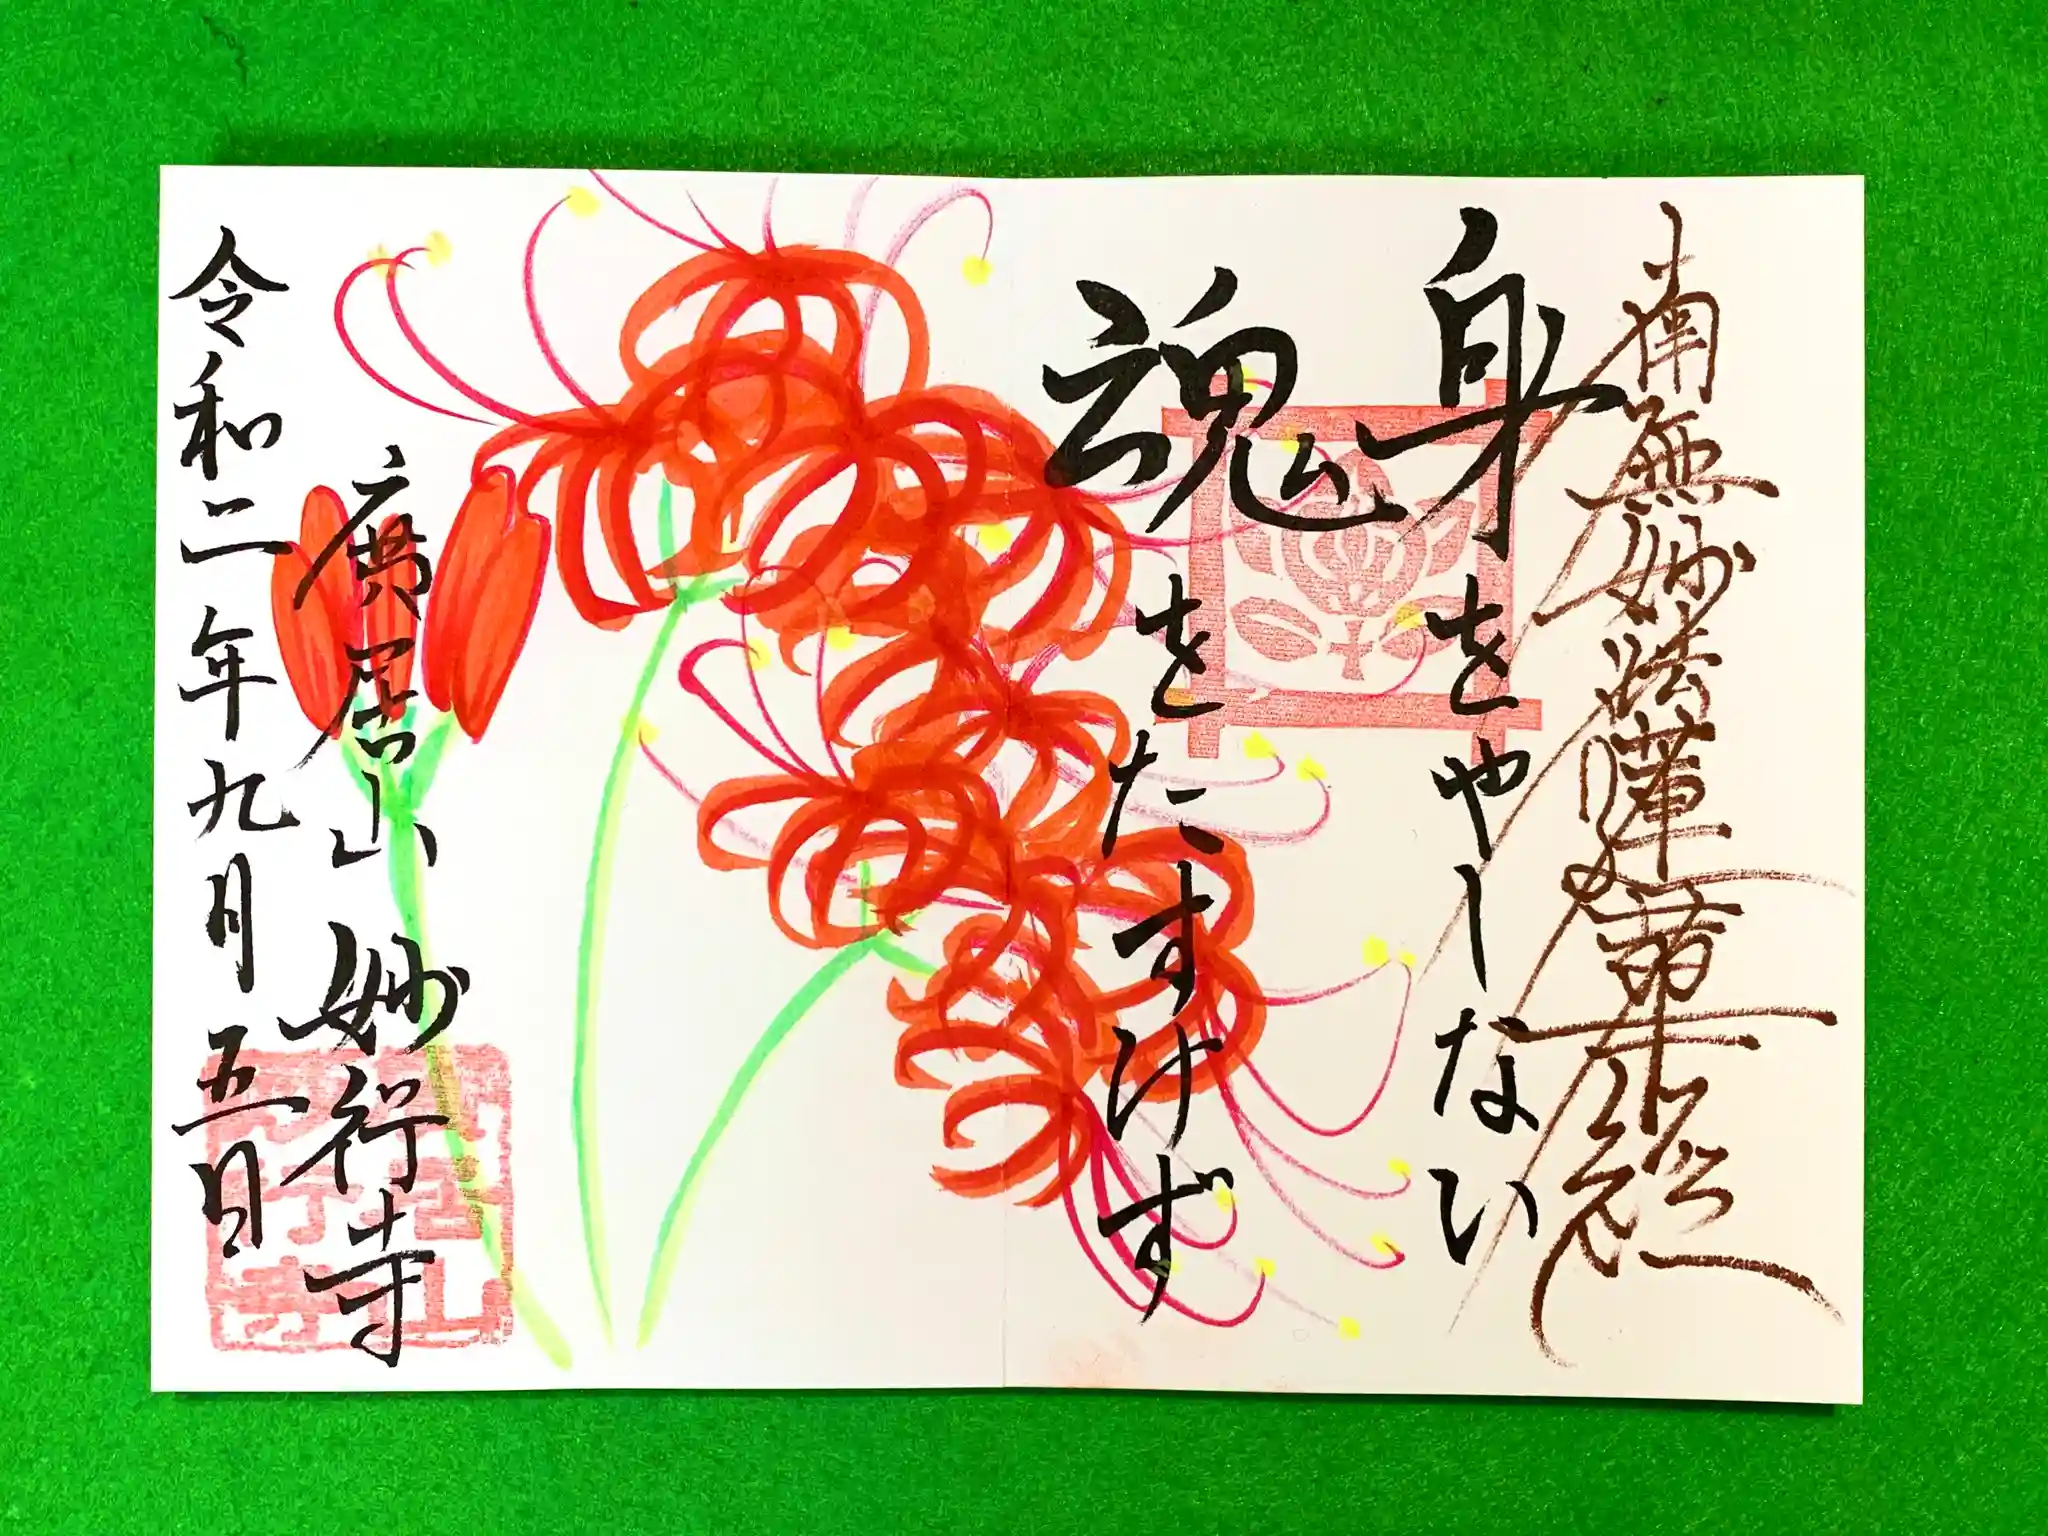 南無妙法蓮華経
身をやしなひ
魂をたすけず
廣居山 妙行寺
令和二年九月五日